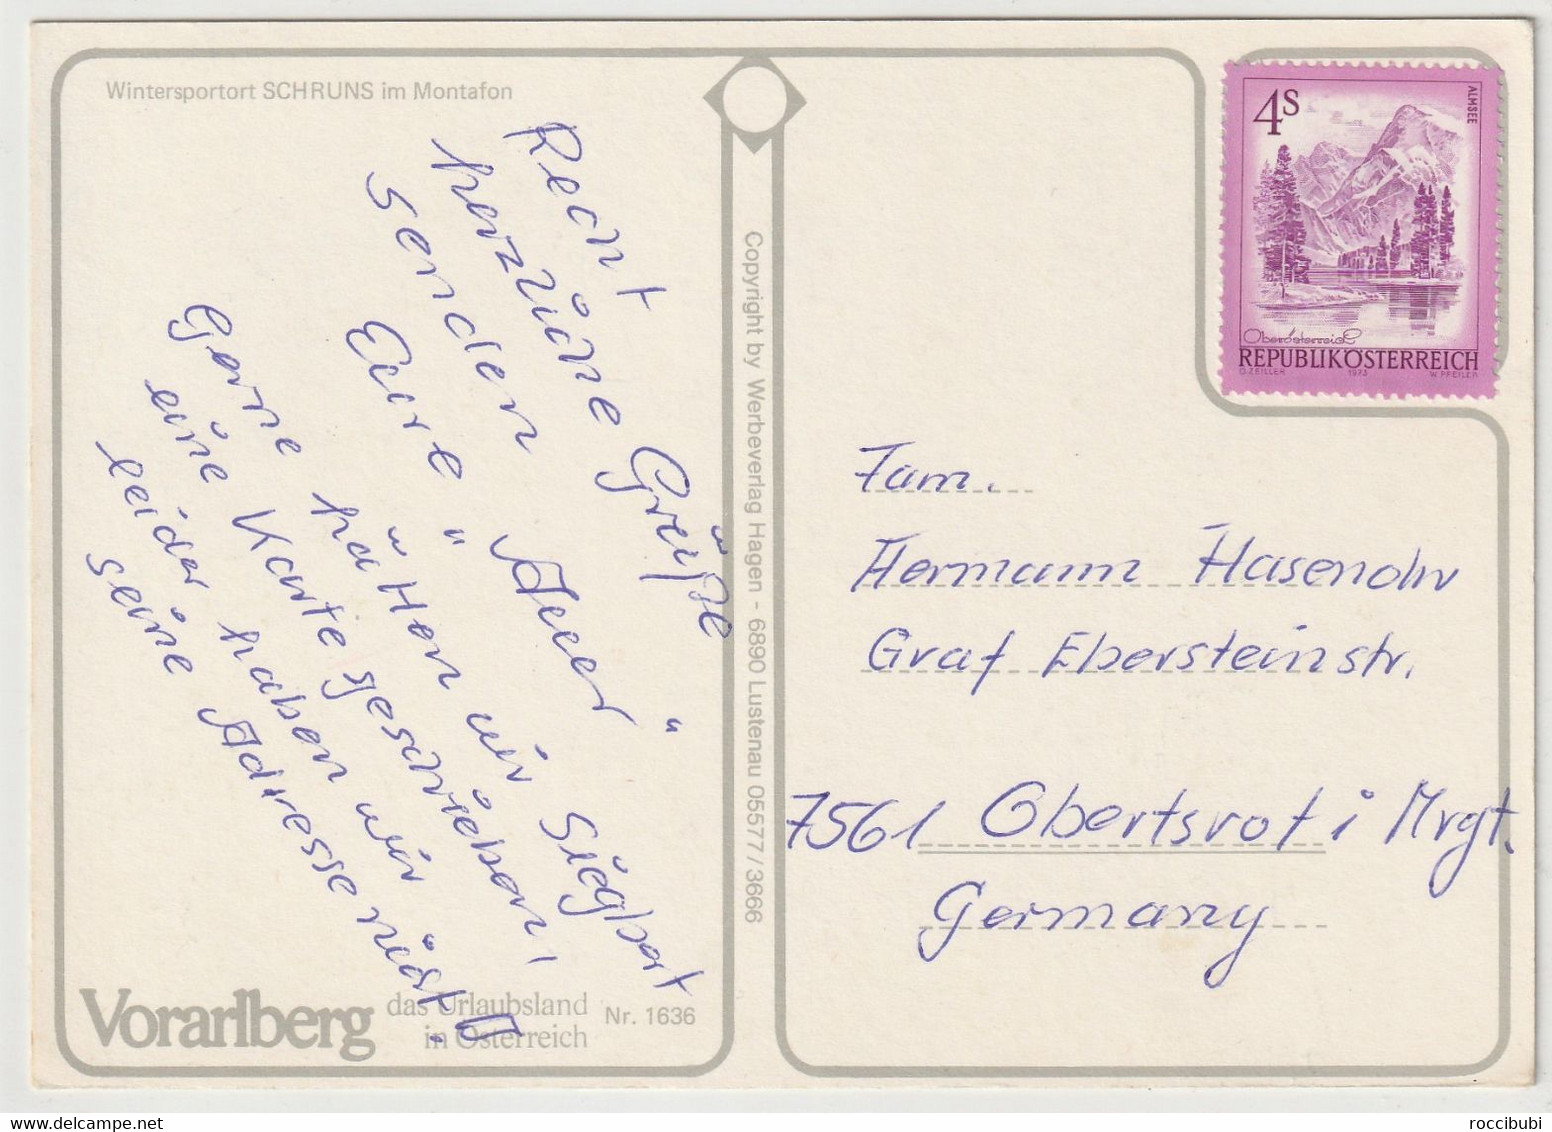 Wintersportort SCHRUNS im Montafon
Recht
herzliche Grüße
senden
Eure "Aller"
Gerne hätten wir Siegbert
eine Karte geschrieben,
leider haben wir
seine Adresse nicht!
Vorarlberg
das Urlaubsland
in Österreich
Nr. 1636
Copyright by Werbeverlag Hagen - 6890 Lustenau 05577/3666
4S
ALMSEE
Oberösterreich
REPUBLIK ÖSTERREICH
O. ZEILLER 1973 W. PFEILER
Fam.
Hermann Hasenohr
Graf Ebersteinstr.
7561 Obertsrot i Mrgt.
Germany
roccibubi